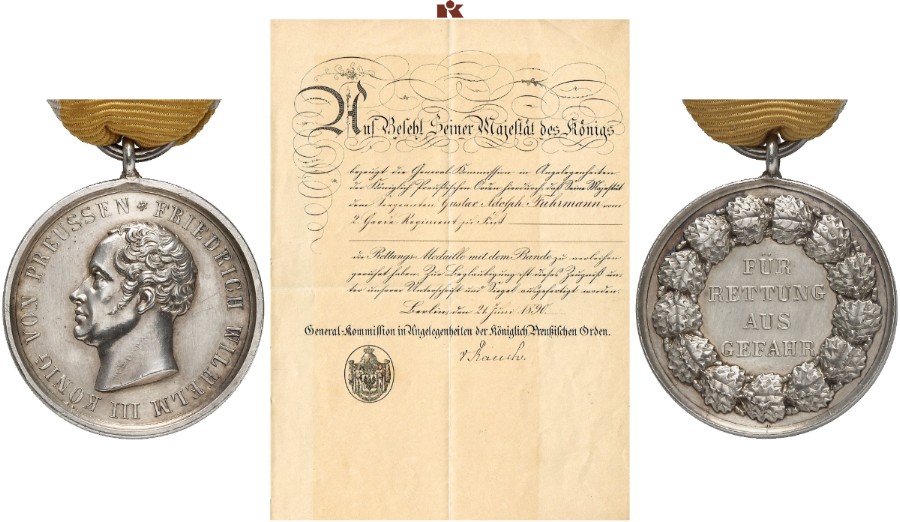 VON PREUSSEN * FRIEDRICH WILHELM III KÖNIG
Auf Befehl Seiner Majestät des Königs
bezeugt die General-Kommission in Angelegenheiten
der Königlich Preußischen Orden hierdurch, daß Seine Majestät
dem Sergeanten Gustav Adolph Fuhrmann vom
2. Garde-Regiment zu Fuß
die Rettungs-Medaille mit dem Bande zu verleihen
geruht haben. Die Beglaubigung ist dieses Zeugniß un-
ter unserer Unterschrift und Siegel ausgefertigt worden.
Berlin, den 21. Juni
General-Kommission in Angelegenheiten der Königlich Preußischen Orden.
v Rauch.
FÜR
RETTUNG
AUS
GEFAHR